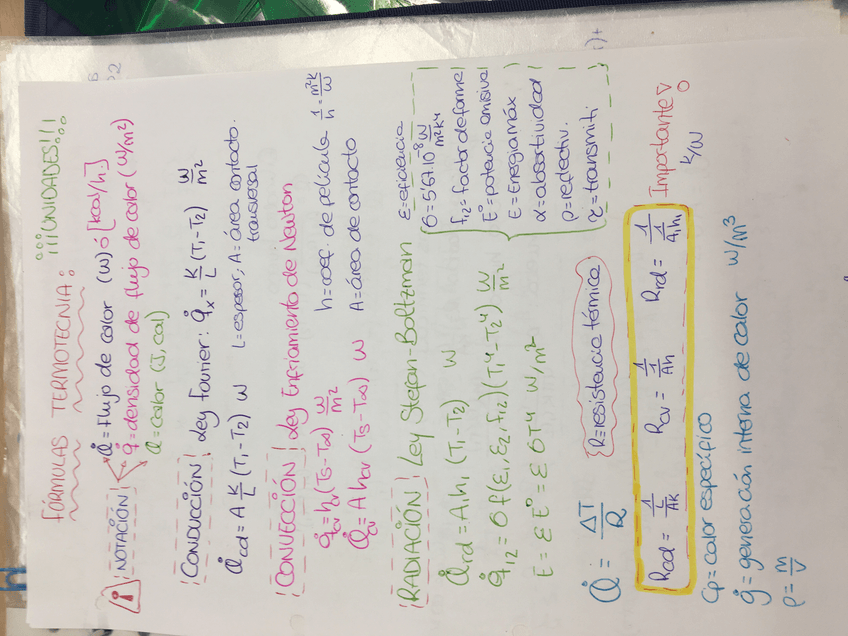 FÓRMULAS TERMOTECNIA: ¡¡¡UNIDADES!!!
NOTACIÓN Q̇=flujo de calor (W) ó [kcal/h]
q̇=densidad de flujo de calor (W/m²)
Q=calor (J, cal)
CONDUCCIÓN Ley Fourier: q̇x = K/L (T1-T2) W/m²
Q̇cd = A K/L (T1-T2) W L=espesor, A=área contacto.
transversal
CONVECCIÓN Ley Enfriamiento de Newton
q̇cv=hcv(Ts-T∞) W/m² h=coef. de película 1/h = m²K/W
Q̇cv=A hcv (Ts-T∞) W A=área de contacto
RADIACIÓN Ley Stefan-Boltzman
Q̇rd = A1h1 (T1-T2) W
q̇12=σ f(ε1, ε2, f12)(T1⁴-T2⁴) W/m²
E = ε E° = ε σT⁴ W/m²
ε=eficiencia
σ=5'67·10⁻⁸ W/m²K⁴
f12=factor de forma
E°=potencia emisiva
E=Energía máx
α=absortividad
ρ=reflectiv.
τ=transmiti.
Q̇ = ΔT/R R=resistencia térmica
Rcd = L/AK Rcv = 1/Ah Rrd = 1/A1h1 Importante!
K/W
Cp=calor específico
g̊=generación interna de calor W/m³
ρ=m/V